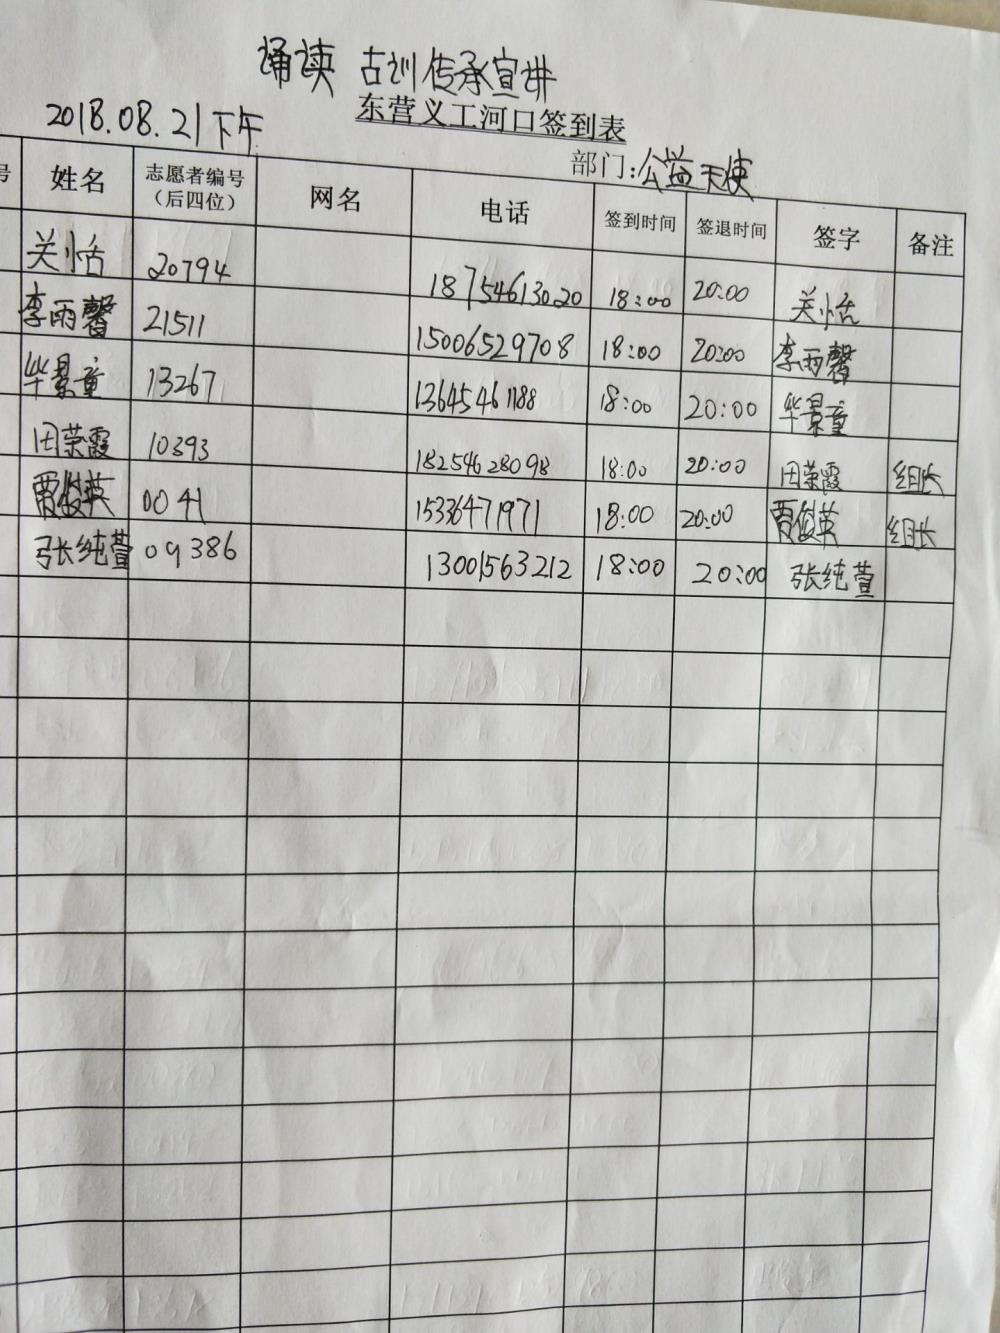 诵读 古训传承宣讲
2018.08.21下午 东营义工河口签到表
部门:公益天使
号 姓名 志愿者编号（后四位） 网名 电话 签到时间 签退时间 签字 备注
关小恬 20794 18754613020 18:00 20:00 关小恬
李雨馨 21511 15006529708 18:00 20:00 李雨馨
毕景童 13267 13645461188 18:00 20:00 毕景童
田荣霞 10393 18254628098 18:00 20:00 田荣霞 组长
贾俊英 0041 15336471971 18:00 20:00 贾俊英 组长
张纯萱 09386 13001563212 18:00 20:00 张纯萱